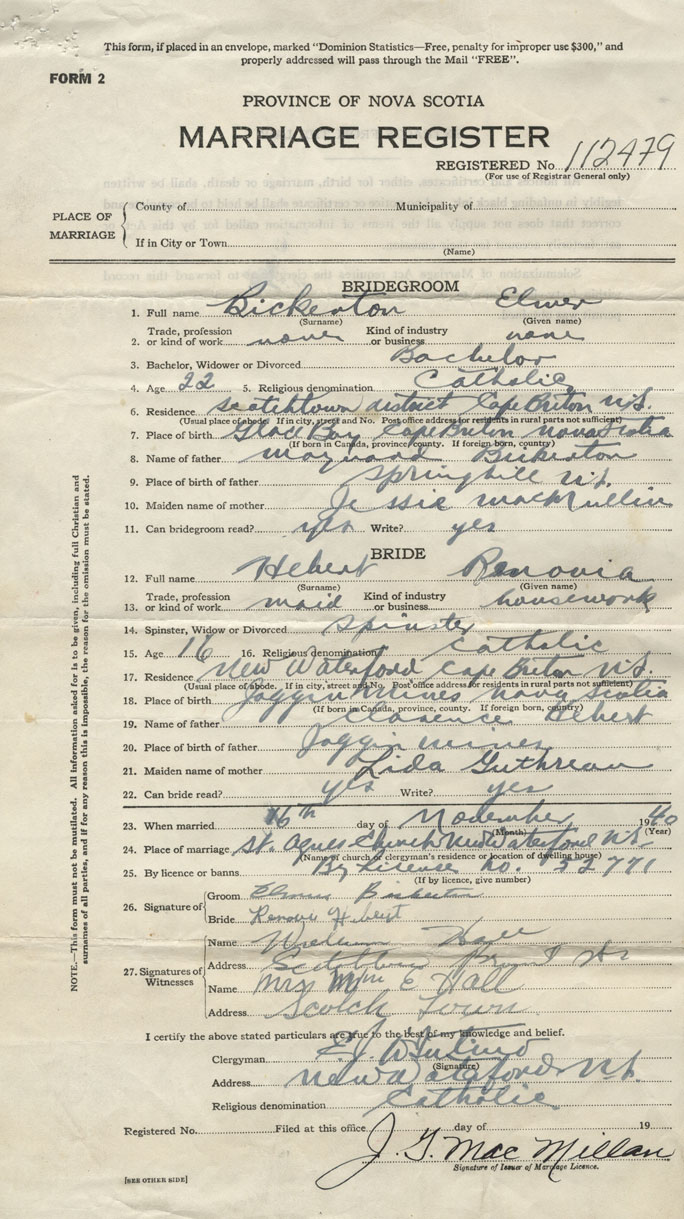 This form, if placed in an envelope, marked "Dominion Statistics—Free, penalty for improper use $300," and
properly addressed will pass through the Mail "FREE".
FORM 2
PROVINCE OF NOVA SCOTIA
MARRIAGE REGISTER
REGISTERED No. 112479
(For use of Registrar General only)
PLACE OF MARRIAGE
County of Municipality of
If in City or Town
(Name)
BRIDEGROOM
1. Full name Bickerton Elmer
(Surname) (Given name)
2. Trade, profession or kind of work none Kind of industry or business none
3. Bachelor, Widower or Divorced Bachelor
4. Age 22 5. Religious denomination Catholic
6. Residence Scotchtown district Cape Breton N.S.
(Usual place of abode. If in city, street and No. Post office address for residents in rural parts not sufficient)
7. Place of birth Glace Bay Cape Breton Nova Scotia
(If born in Canada, province, county. If foreign born, country)
8. Name of father Maynard Bickerton
9. Place of birth of father Springhill N.S.
10. Maiden name of mother Jessie MacMullin
11. Can bridegroom read? yes Write? yes
BRIDE
12. Full name Hebert Renovia
(Surname) (Given name)
13. Trade, profession or kind of work maid Kind of industry or business housework
14. Spinster, Widow or Divorced Spinster
15. Age 16 16. Religious denomination Catholic
17. Residence New Waterford Cape Breton N.S.
(Usual place of abode. If in city, street and No. Post office address for residents in rural parts not sufficient)
18. Place of birth Joggin Mines Nova Scotia
(If born in Canada, province, county. If foreign born, country)
19. Name of father Clarence Hebert
20. Place of birth of father Joggin mines
21. Maiden name of mother Lida Guthreau
22. Can bride read? yes Write? yes
23. When married 16th day of November 1940
(Month) (Year)
24. Place of marriage St. Agnes Church New Waterford N.S.
(Name of church or clergyman's residence or location of dwelling house)
25. By licence or banns By License no. 52771
(If by licence, give number)
26. Signature of Groom Elmer Bickerton
Bride Renovi Hebert
27. Signatures of Witnesses Name William Hall
Address Scotchtown
Name Mrs Wm E Hall
Address Scotch Town
I certify the above stated particulars are true to the best of my knowledge and belief.
Clergyman E.J.
(Signature)
Address New Waterford N.S.
Religious denomination Catholic
Registered No. Filed at this office day of 19
J. G. MacMillan
Signature of Issuer of Marriage Licence.
[SEE OTHER SIDE]
NOTE.—This form must not be mutilated. All information asked for is to be given, including full Christian and
surnames of all parties, and if for any reason this is impossible, the reason for the omission must be stated.